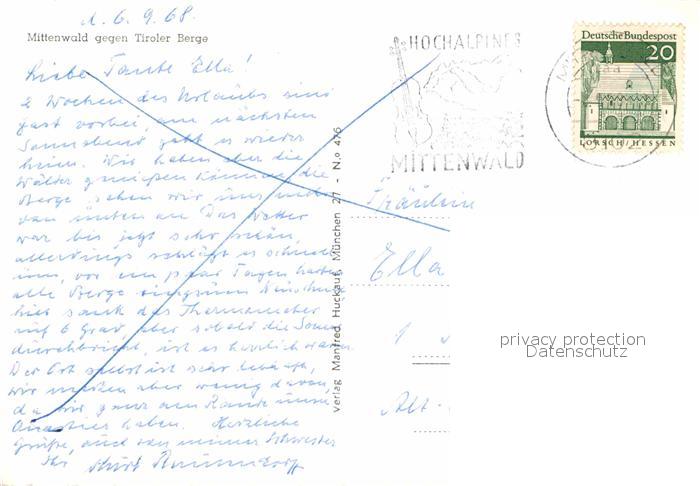 d. 6.9.68.
Mittenwald gegen Tiroler Berge
Liebe Tante Ella!
2 Wochen des Urlaubs sind
fast vorbei, am nächsten
Sonnabend geht es wieder
heim. Wir haben aber die
Wälter genießen können, die
Berge sehen wir uns nur
von unten an. Das Wetter
war bis jetzt sehr schön,
allerdings schlägt es schnell
um, vor ein paar Tagen hatten
alle Berge
hier sank das Thermometer
auf 6 Grad, aber sobald die Sonne
durchbricht, ist es herrlich warm.
Der Ort selbst ist sehr lebhaft,
wir merken aber wenig davon,
da wir ganz am Rande unser
Quartier haben. Herzliche
Grüße, auch von meiner Schwester
Ihr Kurt
Verlag Manfred Huckauf, München 27 - No 426
HOCHALPINES
MITTENWALD
Deutsche Bundespost
20
LORSCH/HESSEN
Fräulein
Ella
1
Alt-
privacy protection
Datenschutz